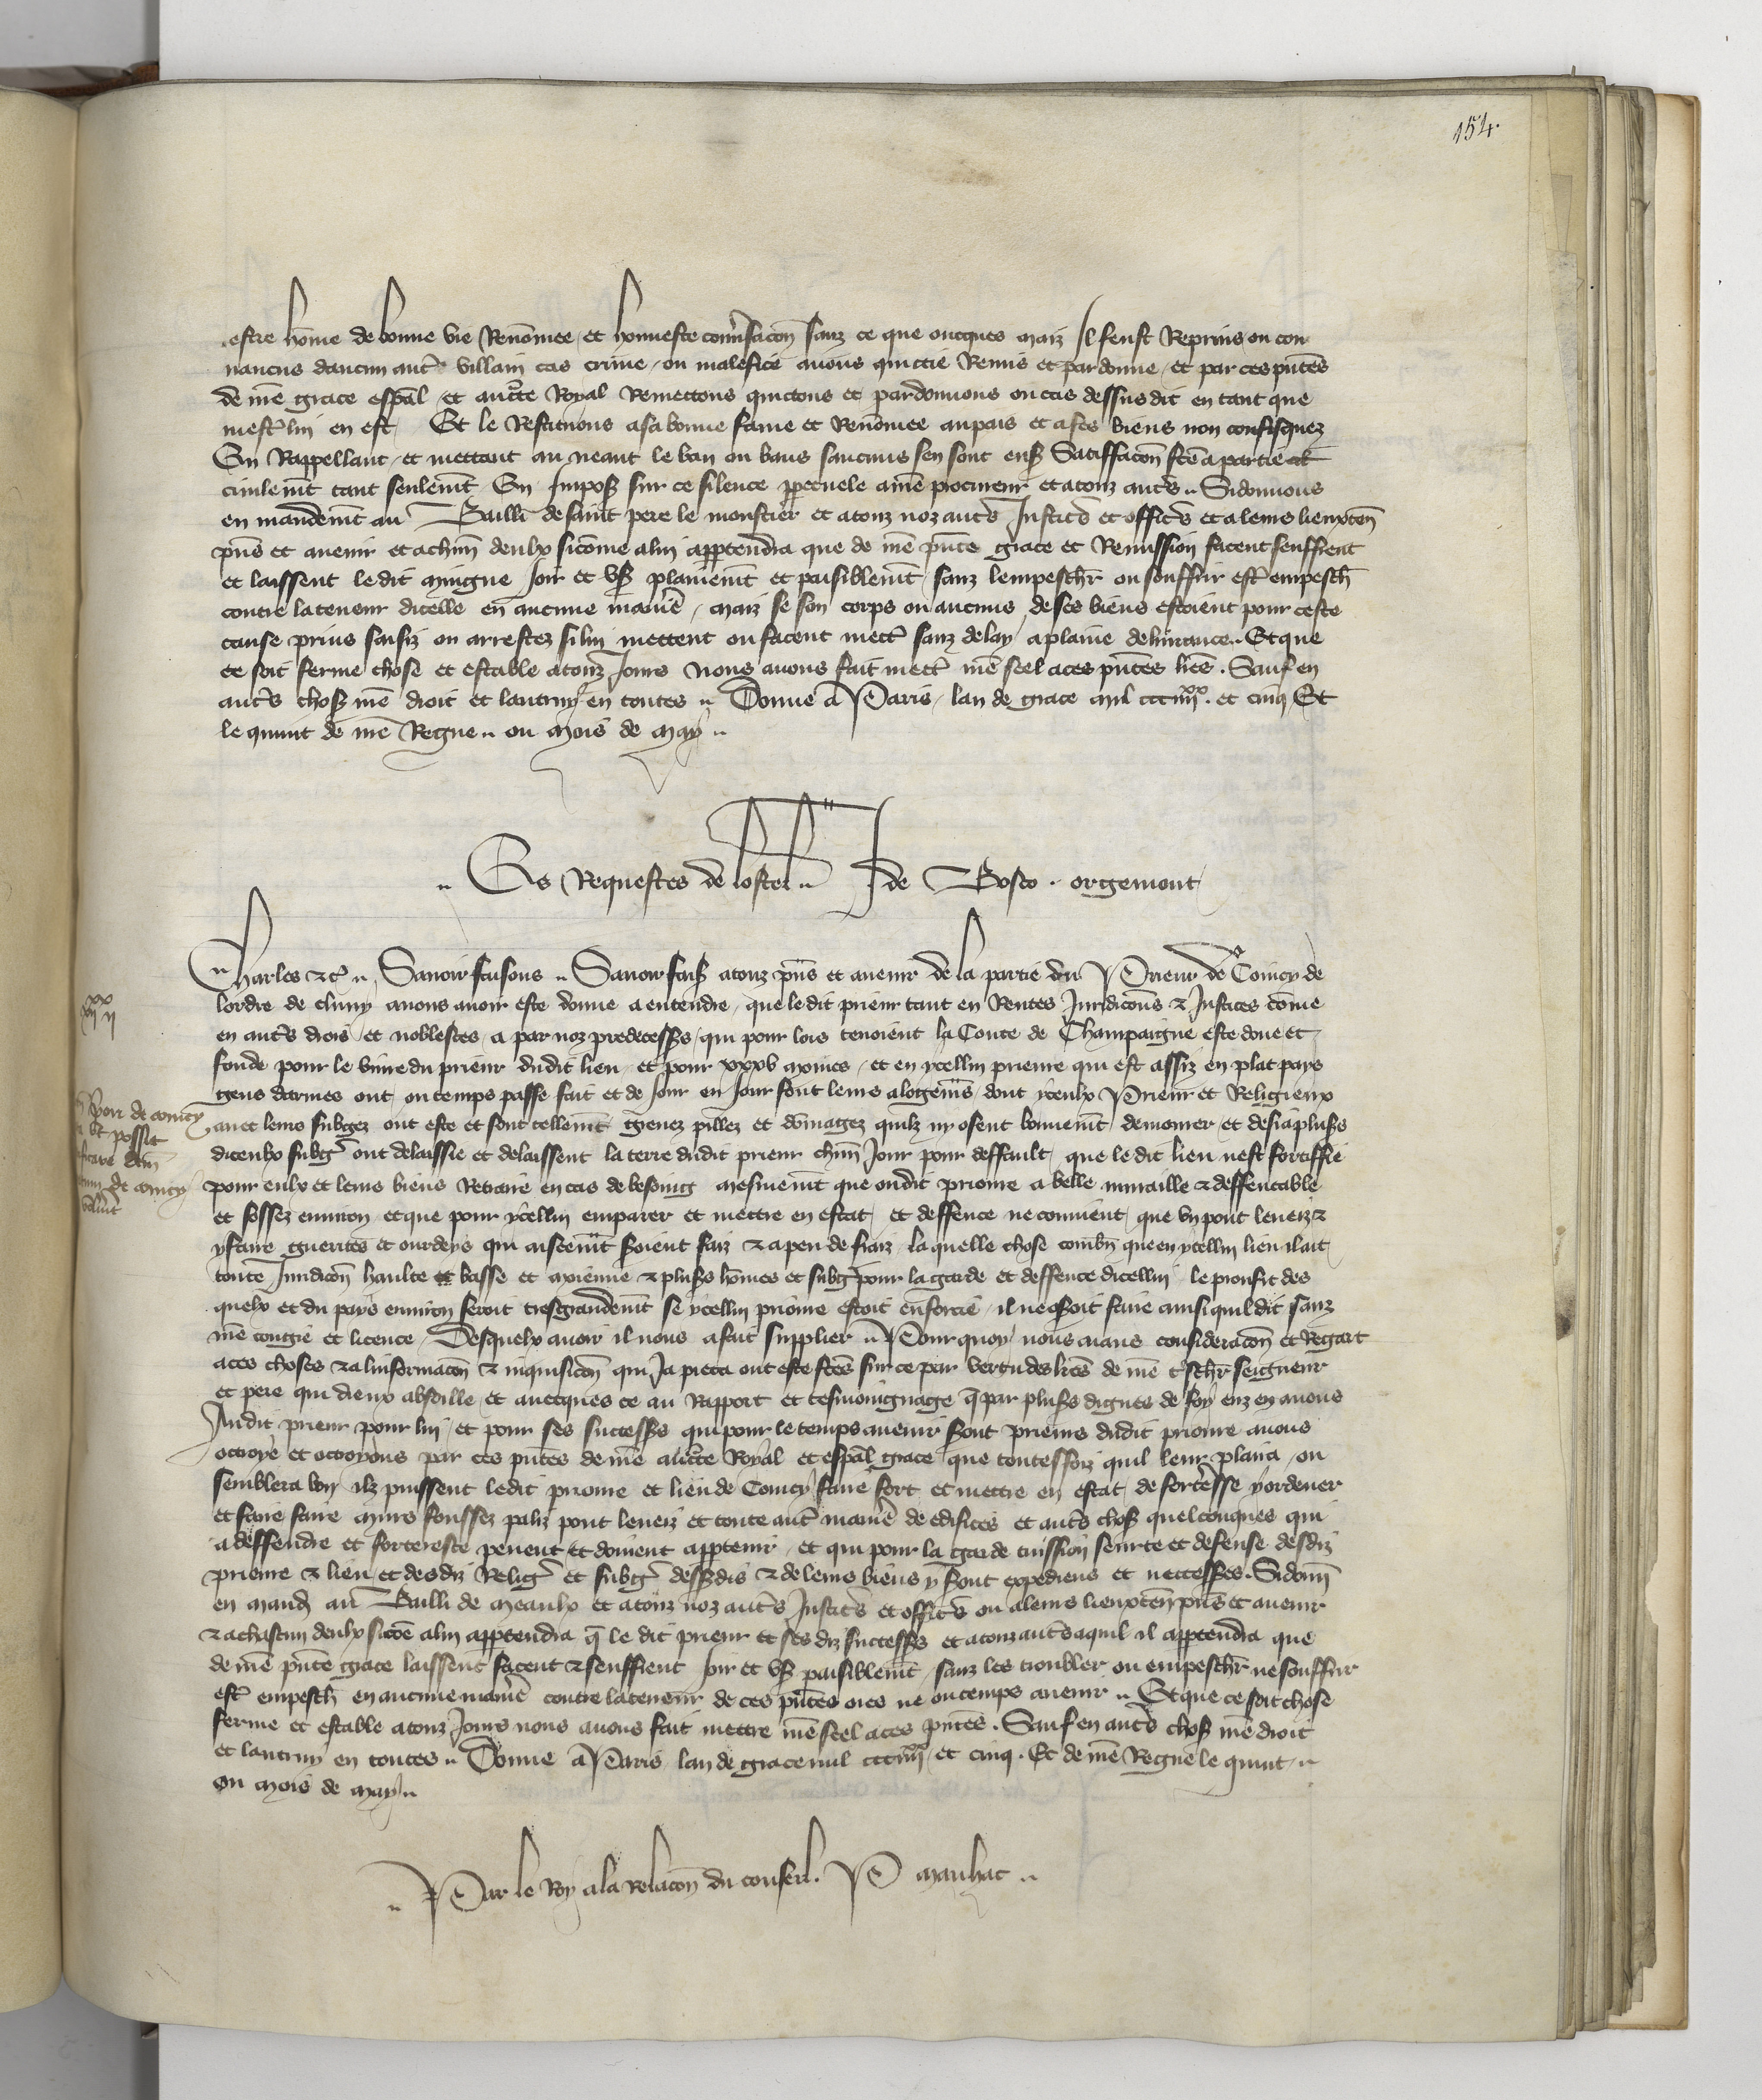 154.
estre hõme de bonne vie Renõmee et honneste conv̾sacõn sanz ce que oncques maiz Il feust Reprins ou con
vaincus daucun aut̾ villain cas crime ou malefice avons quictie Remis et pardonne et par ces p̃ntes
de nr̃e grace esp̃al et auct̃e Royal Remectons quictons et pardonnons ou cas dessus dit en tant que
mest̾ lui en est Et le Restituons a sa bonne fame et Renõmee au pais et a ses biens non confisquez
En Rappellant et mettant au neant le ban ou bans saucuns sen sont ens̃ Satiffacõn fc̃e a partie
civilem̃t tant seulem̃t En Impos̃ sur ce silence p̱petuele a nr̃e procureur et a touz aut̾s Si donnons
en mandem̃t au Bailli de saint pere le moustier et a touz noz aut̾s Justic̾s et offic̾s et a leurs lieuxten̄
p̃ns et avenir et a chũn deulx si cõme a lui app̱tendra que de nr̃e p̃nte grace et Remission facent seuffrent
et laissent le dit Mingne Joir et us̃ plainem̃t et paisiblem̃t sanz lempesch̃r ou souffrir est̾ empesch̃
contre la teneur dicelle en aucune manie᷑ maiz se son corps ou aucuns de ses biens estoient pour ceste
cause prins saisiz ou arrestez si lui mettent ou facent mect̾ sanz delay a plaine delivrance Et que
ce soit ferme chose et estable a touz Jours Nous avons fait mect̾ nr̃e seel a ces p̃ntes lr̃es . Sauf en
aut̾s chos̃ nr̃e droit et lautruy en toutes Donne a Paris lan de grace mil ccc iiii xx. et cinq Et
le quint de nr̃e Regne ou mois de may
Es Requestes de lostel J de Bosco . orgemont
Charles &c̾ Savoir faisons Savoir fais̃ a touz p̃ns et avenir de la partie du Prieur de Coincy de
lordre de cluny avons avoir este donne a entendre que le dit prieur tant en Rentes Juridicõns & Justices cõme
en aut̾s drois et noblesces a par noz predecess̃s qui pour lors tenoient la Conte de Champaigne este doue et
fonde pour le vivre du prieur dudit lieu et pour xxxv moines et en ycellui prieure qui est assiz en plat pays
gens darmes ont ou temps passe fait et de Jour en Jour font leurs alogem̃s dont yceulx Prieur et Religieux
avec leurs subgez ont este et sont tellem̃t grevez pillez et dõmagez quilz ny osent bonnem̃t demourer et desia plus̃s
diceulx subg̾ ont delaissie et delaissent la terre dudit prieur chũn Jour pour deffault que le dit lieu nest fortiffie
pour eulx et leurs biens Retraire en cas de besoing mesmem̃t que oudit prioure a belle muraille & deffensable
et fossez environ et que pour ycellui emparer et mettre en estat et deffence ne convient que un pont leveiz &
y faire guerites et ourdeys qui aiseem̃t soient faiz & a peu de fraiz la quelle chose comb̃n que en ycellui lieu il ait
toute Juridicõn haulte et basse et moienne & plus̃s hõmes et subg̾ pour la garde et deffence dicellui le proufit des
quelx et du pays environ seroit tresgrandem̃t se ycellui prioure estoit enforcie il ne oseroit faire ainsi quil dit sanz
nr̃e congie et licence Desquelx avoir il nous a fait supplier Pour quoy nous aians consideracõn et Regart
a ces choses & a linformacõn & inquisicõn qui Ja pieca ont este fc̃es sur ce par vertu des lr̃es de nr̃e t̾sch̃r seigneur
et pere qui dieux absoille et avecques ce au Rapport et tesmoingnage q̃ par plus̃s dignes de foy euz en avons
Audit prieur pour lui et pour ses success̃s qui pour le temps avenir seront prieurs dudit prioure avons
octroye et octroyons par ces p̃ntes de nr̃e auct̃e Royal et esp̃al grace que toutesfoiz quil leur plaira ou
semblera bon ilz puissent ledit prioure et lieu de Coincy faire fort et mettre en estat de forteresse y ordener
et faire faire murs foussez paliz pont leveiz et toute aut̾ manie᷑ de edifices et aut̾s chos̃ quelconques qui
a deffendre et forteresce pevent et doivent app̱tenir et qui pour la garde tuission seurte et defense desdiz
prieure & lieu et desdiz Relig̾ et subg̾ dess̃dis & de leurs biens y seront expediens et neccess̃es . Si donñ
en mand̃ au Bailli de Meaulx et a touz noz aut̾s Justic̾s et offic̾s ou a leurs lieuxten̄ p̃ns et avenir
& a chascun deulx si cõe a lui app̱tendra q̃ le dit prieur et ses diz success̃s et a touz aut̾s a qui il app̱tendra que
de nr̃e p̃nte grace laissent facent & seuffrent Joir et us̃ paisiblem̃t sanz les troubler ou empesch̃r ne souffrir
est̾ empesch̃ en aucune manie᷑ contre la teneur de ces p̃ntes ores ne ou temps avenir Et que ce soit chose
ferme et estable a touz Jours nous avons fait mettre nr̃e seel a ces p̃ntes . Sauf en aut̾s chos̃ nr̃e droit
et lautruy en toutes Donne a Paris lan de grace mil ccc iiii xx et cinq . Et de nr̃e Regne le quint
ou mois de may
Par le Roy a la relacõn du conseil . P Manhac